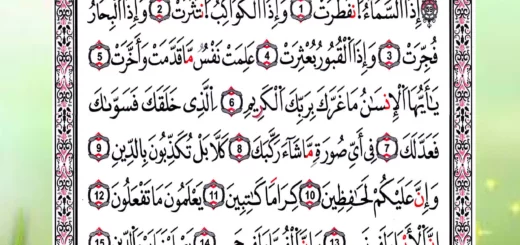 إِذَا ٱلسَّمَآءُ ٱنفَطَرَتْ ① وَإِذَا ٱلْكَوَاكِبُ ٱنتَثَرَتْ ② وَإِذَا ٱلْبِحَارُ
فُجِّرَتْ ③ وَإِذَا ٱلْقُبُورُ بُعْثِرَتْ ④ عَلِمَتْ نَفْسٌ مَّا قَدَّمَتْ وَأَخَّرَتْ ⑤
يَٰٓأَيُّهَا ٱلْإِنسَٰنُ مَا غَرَّكَ بِرَبِّكَ ٱلْكَرِيمِ ⑥ ٱلَّذِى خَلَقَكَ فَسَوَّىٰكَ
فَعَدَلَكَ ⑦ فِىٓ أَىِّ صُورَةٍ مَّا شَآءَ رَكَّبَكَ ⑧ كَلَّا بَلْ تُكَذِّبُونَ بِٱلدِّينِ ⑨
وَإِنَّ عَلَيْكُمْ لَحَٰفِظِينَ ⑩ كِرَامًا كَٰتِبِينَ ⑪ يَعْلَمُونَ مَا تَفْعَلُونَ ⑫